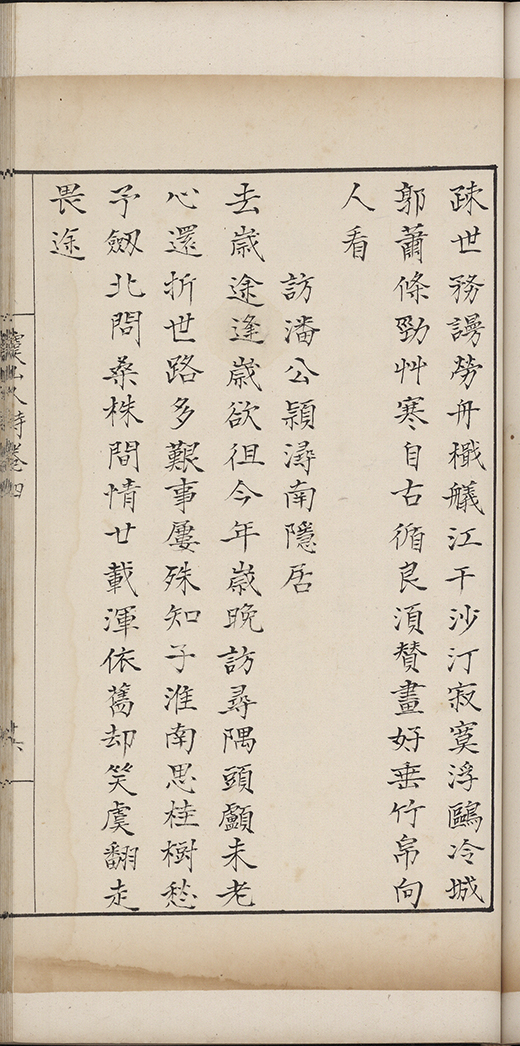 疎世務謾勞舟檝艤江干沙汀寂寞浮鷗冷城
郭蕭條勁艸寒自古循良湏賛畫好垂竹帛向
人看
訪潘公穎潯南隱居
去嵗途逢嵗欲徂今年嵗晚訪尋隅頭顱未老
心還折世路多艱事屢殊知子淮南思桂樹愁
予劔北問桑株間情廿載渾依舊却笑虞翻走
畏途
山人詩卷四